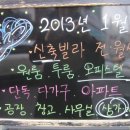 2013년 1월
신축빌라 전.월
원룸.투룸.오피스텔
단독.다가구.아파트
공장.창고.사무실.상가